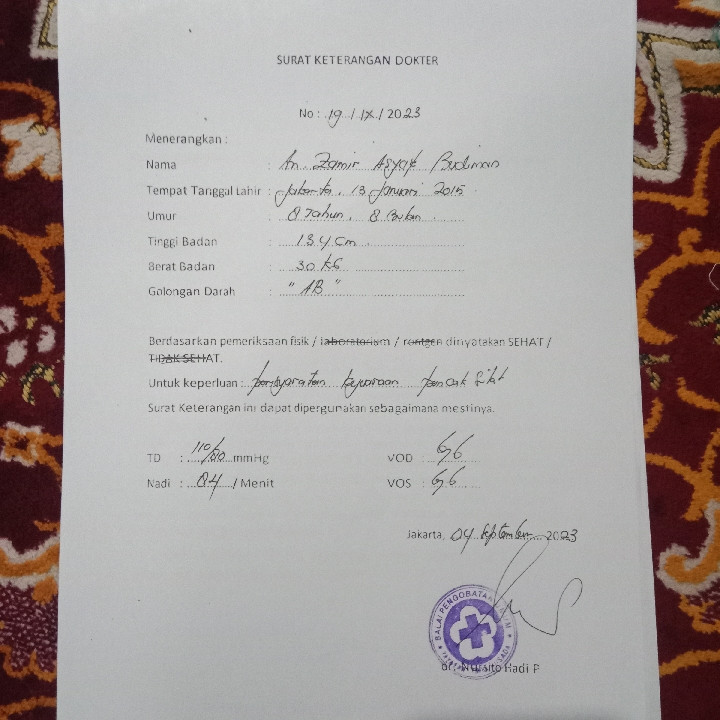 SURAT KETERANGAN DOKTER
No : 19 / IX / 2023
Menerangkan :
Nama : An. Zamir Asyaif Budiman
Tempat Tanggal Lahir : Jakarta, 13 Januari 2015
Umur : 8 Tahun, 8 Bulan
Tinggi Badan : 134 cm
Berat Badan : 30 KG
Golongan Darah : "AB"
Berdasarkan pemeriksaan fisik / laboratorium / rontgen dinyatakan SEHAT /
TIDAK SEHAT.
Untuk keperluan : persyaratan kejuaraan pencak silat
Surat Keterangan ini dapat dipergunakan sebagaimana mestinya.
TD : 110/80 mmHg VOD : 6/6
Nadi : 84 / Menit VOS : 6/6
Jakarta, 04 September 2023
BALAI PENGOBATAN UMUM
dr. Nursito Hadi P